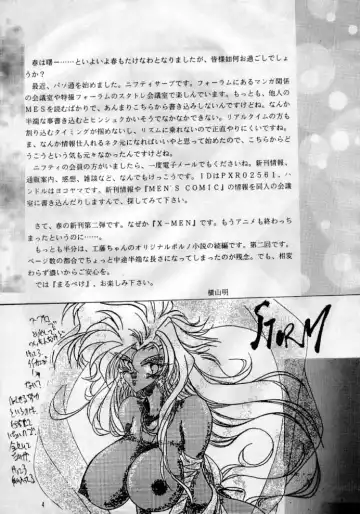 春は曙一……といよいよ春もたけなわとなりましたが、皆様如何お過ごしでしょうか？
最近、パソ通を始めました。ニフティサーブです。フォーラムにあるマンガ関係の会議室や特撮フォーラムのスタトレ会議室で楽しんでいます。もっとも、他人のMESを読むばかりで、あんまりこちらから書き込みしないんですけどね。なんか半端な事書き込むとヒンシュクかいそうでなかなかできない。リアルタイムの方も割り込むタイミングが掴めないし、リズムに乗れないので正直やりにくいですね。ま、なんか情報仕入れるネタ元になればいいやと思って始めたので、こちらからどうこうという気も元々なかったんですけどね。
ニフティの会員の方がいましたら、一度電子メールでもくださいね。新刊情報、通販案内、感想、雑談など、なんでもけっこうです。IDはPXR02561、ハンドルはヨコヤマです。新刊情報や『MEN'S COMIC』の情報を同人の会議室に書き込んだりしますんで、探してみて下さい。
さて、春の新刊第二弾です。なぜか『X-MEN』です。もうアニメも終わっちまったというのに……。
もっとも半分は、工藤ちゃんのオリジナルポルノ小説の続編です。第二回です。ページ数の都合でちょっと中途半端な長さになってしまったのが残念。でも、相変わらず濃いからご安心を。
では『まるぺけ』、お楽しみ下さい。
横山明
STORM
4